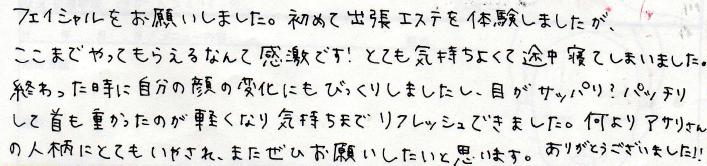 フェイシャルをお願いしました。初めて出張エステを体験しましたが、
ここまでやってもらえるなんて感激です!とても気持ちよくて途中寝てしまいました。
終わった時に自分の顔の変化にもびっくりしましたし、目がサッパリ?パッチリ
して首も重かったのが軽くなり気持ちまでリフレッシュできました。何よりアサリさん
の人柄にとてもいやされ、またぜひお願いしたいと思います。ありがとうございました!!